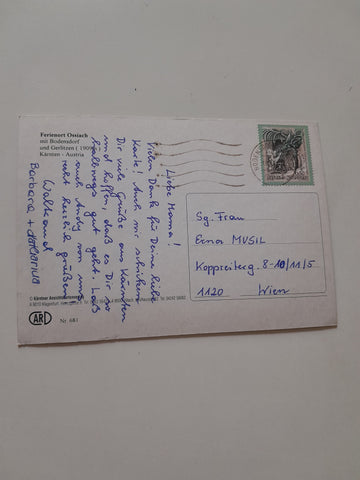 Ferienort Ossiach
mit Bodensdorf
und Gerlitzen (1909
Kärnten - Austria
Liebe Mama!
Vielen Dank für Deine liebe
Karte! Auch wir schicken
Dir viele Grüße aus Kärnten
und hoffen, daß es Dir so
halbwegs gut geht. Laß
auch Andy von uns
recht herzlich grüßen
Waltraud
Barbara +
Sg. Frau
Erna MUSIL
Koppreiterg. 8-10/11/5
1120 Wien
ARL Nr. 681